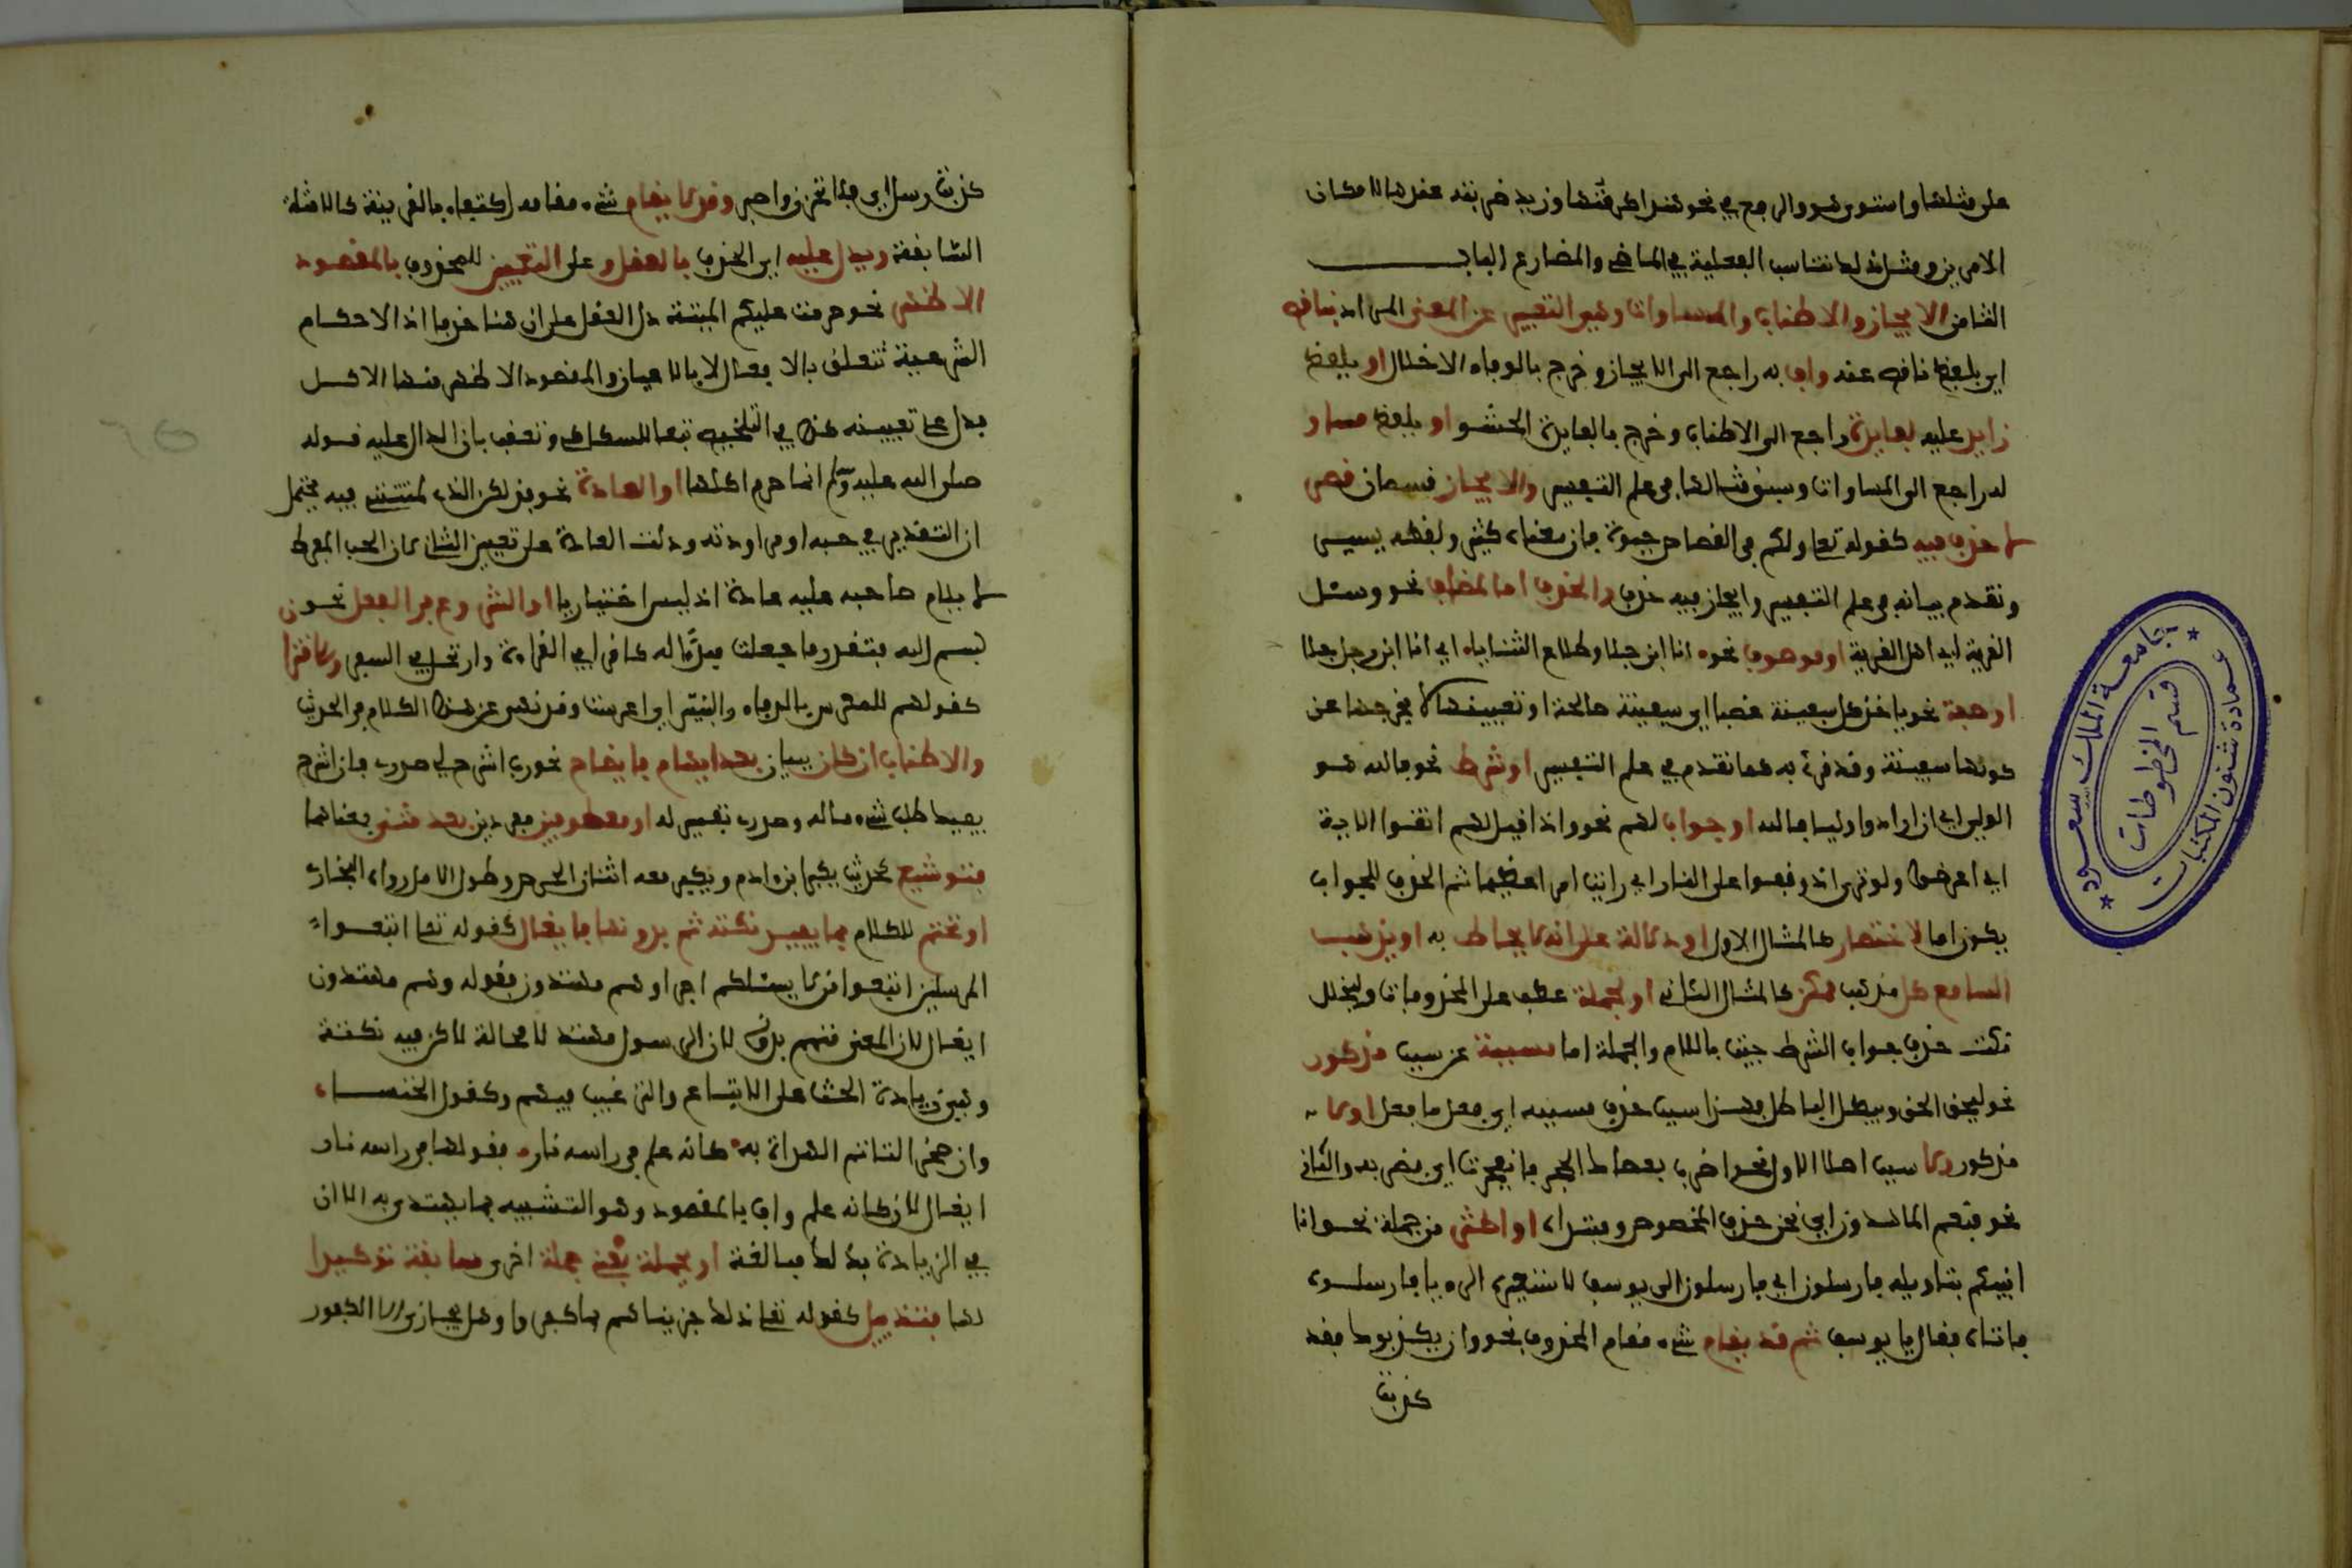 على مثلها واستوى هو والرجوع في نحو هند اكرمتها وزيد ضربته عندها لامكان
الامرين ومثل ذلك تناسب الفعلية في الماضي والمضارع الباب
الثامن الايجاز والاطناب والمساواة وهي التعبير عن المعنى المراد بناقص
اي بلفظ ناقص عنه واف به راجع الى الايجاز وخرج بالوفاء الاخلال او بلفظ
زايد عليه لفايدة راجع الى الاطناب وخرج بالفايدة الحشو او بلفظ مساو
له راجع الى المساواة وسبق مثالها في علم التفسير والايجاز قسمان قصر
لا حذف فيه كقوله تعا ولكم في القصاص حيوة فان معناه كثير ولفظه يسير
وتقدم بيانه في علم التفسير وايجاز فيه حذف والحذف اما لمضاف نحو وسئل
القرية اي اهل القرية او موصوف نحوه انا ابن جلا وطلاع الثناياه اي انا ابن رجل جلا
او صفة نحو ياخذ كل سفينة غصبا اي سفينة صالحة او تعييبها لا يخرجها عن
كونها سفينة وقد قرئ به كما تقدم في علم التفسير او شرط نحو فالله هو
الولي اي ان ارادوا وليا فالله او جواب لهم نحو واذا قيل لهم اتقوا الاية
اي اعرضوا ولو ترى اذ وقفوا على النار اي رايت امرا عظيما ثم الحذف للجواب
يكون اما لاختصار كالمثال الاول او دلالة على انه لا يحاط به او يذهب
السامع كل مذهب ممكن كالمثال الثاني او لجملة عطف على المحذوفات وليخلل
نكت حذف جواب الشرط جيت باللام والجملة اما مسببة عن سبب مذكور
نحو ليحق الحق ويبطل الباطل فهذا سبب حذف مسببه اي فعل ما فعل او لا
مذكور ولا سبب اصلا الاول نحو اضرب بعصاك الحجر فانفجرت اي فضربه والثاني
نحو فنعم الماهدون اي نحن حذف المخصوص ومبتداه او اكثر من جملة نحو انا
انبيكم بتاويله فارسلون اي فارسلون الى يوسف لاستعبره الرويا فارسلوه
فاتاه فقال يا يوسف ثم قد يقام شيء مقام المحذوف نحو وان يكذبوك فقد
كذبت
كذبت رسل اي فلا تحزن واصبر وقد لا يقام شيء مقامه اكتفاء بالقرينة كالامثلة
السابقة ويدل عليه اي الحذف بالعقل و على التعيين للمحذوف بالمقصود
الاظهر نحو حرمت عليكم الميتة دل العقل على ان هنا حذفا اذ الاحكام
الشرعية تتعلق بالافعال لا بالاعيان والمقصود الاظهر منها الاكل
فدل على تعيينه كذا في التلخيص تبعا للسكاكي وتعقب بان الدال عليه قوله
صلى الله عليه وسلم انما حرم اكلها او العادة نحو فذلكن الذي لمتنني فيه يحتمل
ان التقدير في حبه او مراودته ودلت العادة على تعيين الثاني لان الحب المفرط
لا يلام صاحبه عليه عادة اذ ليس اختياريا او الشروع في الفعل نحو
بسم الله فتقدر ما جعلت مبدا له كاقرا في القراءة وارتحل في السفر والاقتران
كقولهم للمعرس بالرفاء والبنين اي اعرست وقد نهي عن هذا الكلام في الحديث
والاطناب ان كان ببيان بعد ابهام فايضاح نحو رب اشرح لي صدري فان اشرح
يفيد طلب شيء ماله وصدري تفسير له او بمعطوفين مفردين بعد مثنى بمعناهما
فتوشيع كحديث يكبر ابن ادم ويكبر معه اثنان الحرص وطول الامل رواه البخاري
او بختم للكلام بما يفيد نكتة تتم بدونها فايغال كقوله تعا اتبعوا
المرسلين اتبعوا من لا يسئلكم اجرا وهم مهتدون فقوله وهم مهتدون
ايغال لان المعنى فهم بدونه لان الرسول مهتد لا محالة لاكن فيه نكتة
وهي زيادة الحث على الاتباع والترغيب فيهم وكقول الخنساء
وان صخرا لتاتم الهداة به كانه علم في راسه ناره فقولها في راسه نار
ايغال لان كانه علم واف بالمقصود وهو التشبيه بما يهتدى به الا ان
في الزيادة بذلك مبالغة او بجملة بمعنى جملة اخرى سابقة توكيدا
لها فتذييل كقوله تعا ذلك جزيناهم بما كفروا وهل يجازى الا الكفور
جامعة الملك سعود
عمادة شئون المكتبات
قسم المخطوطات